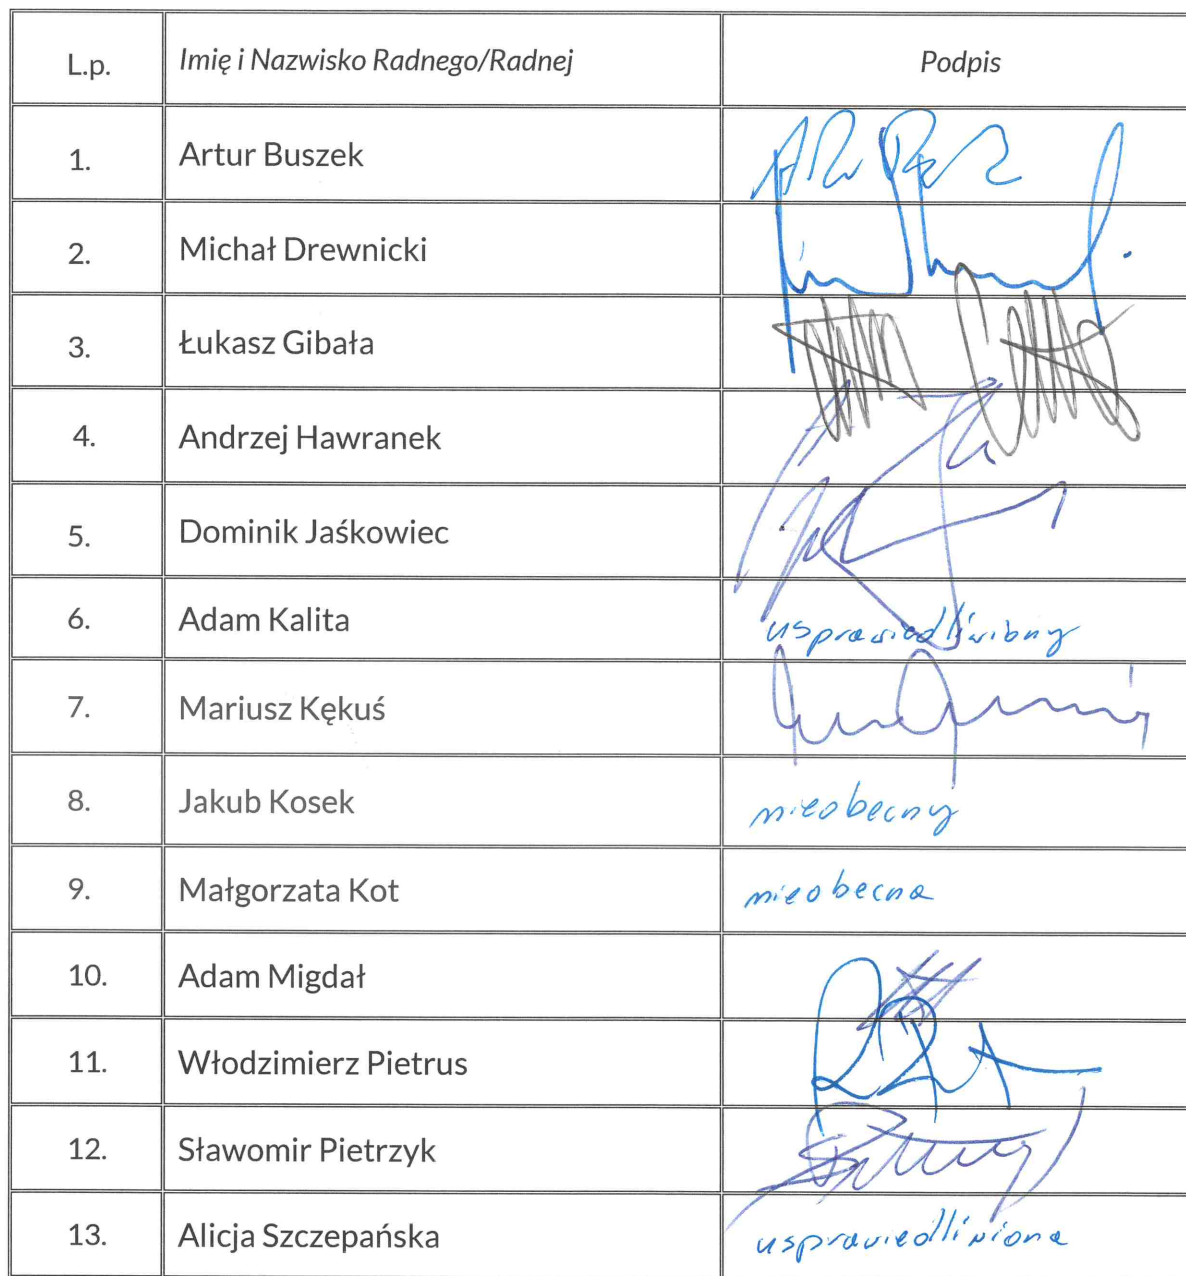 L.p. Imię i Nazwisko Radnego/Radnej Podpis
1. Artur Buszek
2. Michał Drewnicki
3. Łukasz Gibała
4. Andrzej Hawranek
5. Dominik Jaśkowiec
6. Adam Kalita usprawiedliwiony
7. Mariusz Kękuś
8. Jakub Kosek nieobecny
9. Małgorzata Kot nieobecna
10. Adam Migdał
11. Włodzimierz Pietrus
12. Sławomir Pietrzyk
13. Alicja Szczepańska usprawiedliwiona